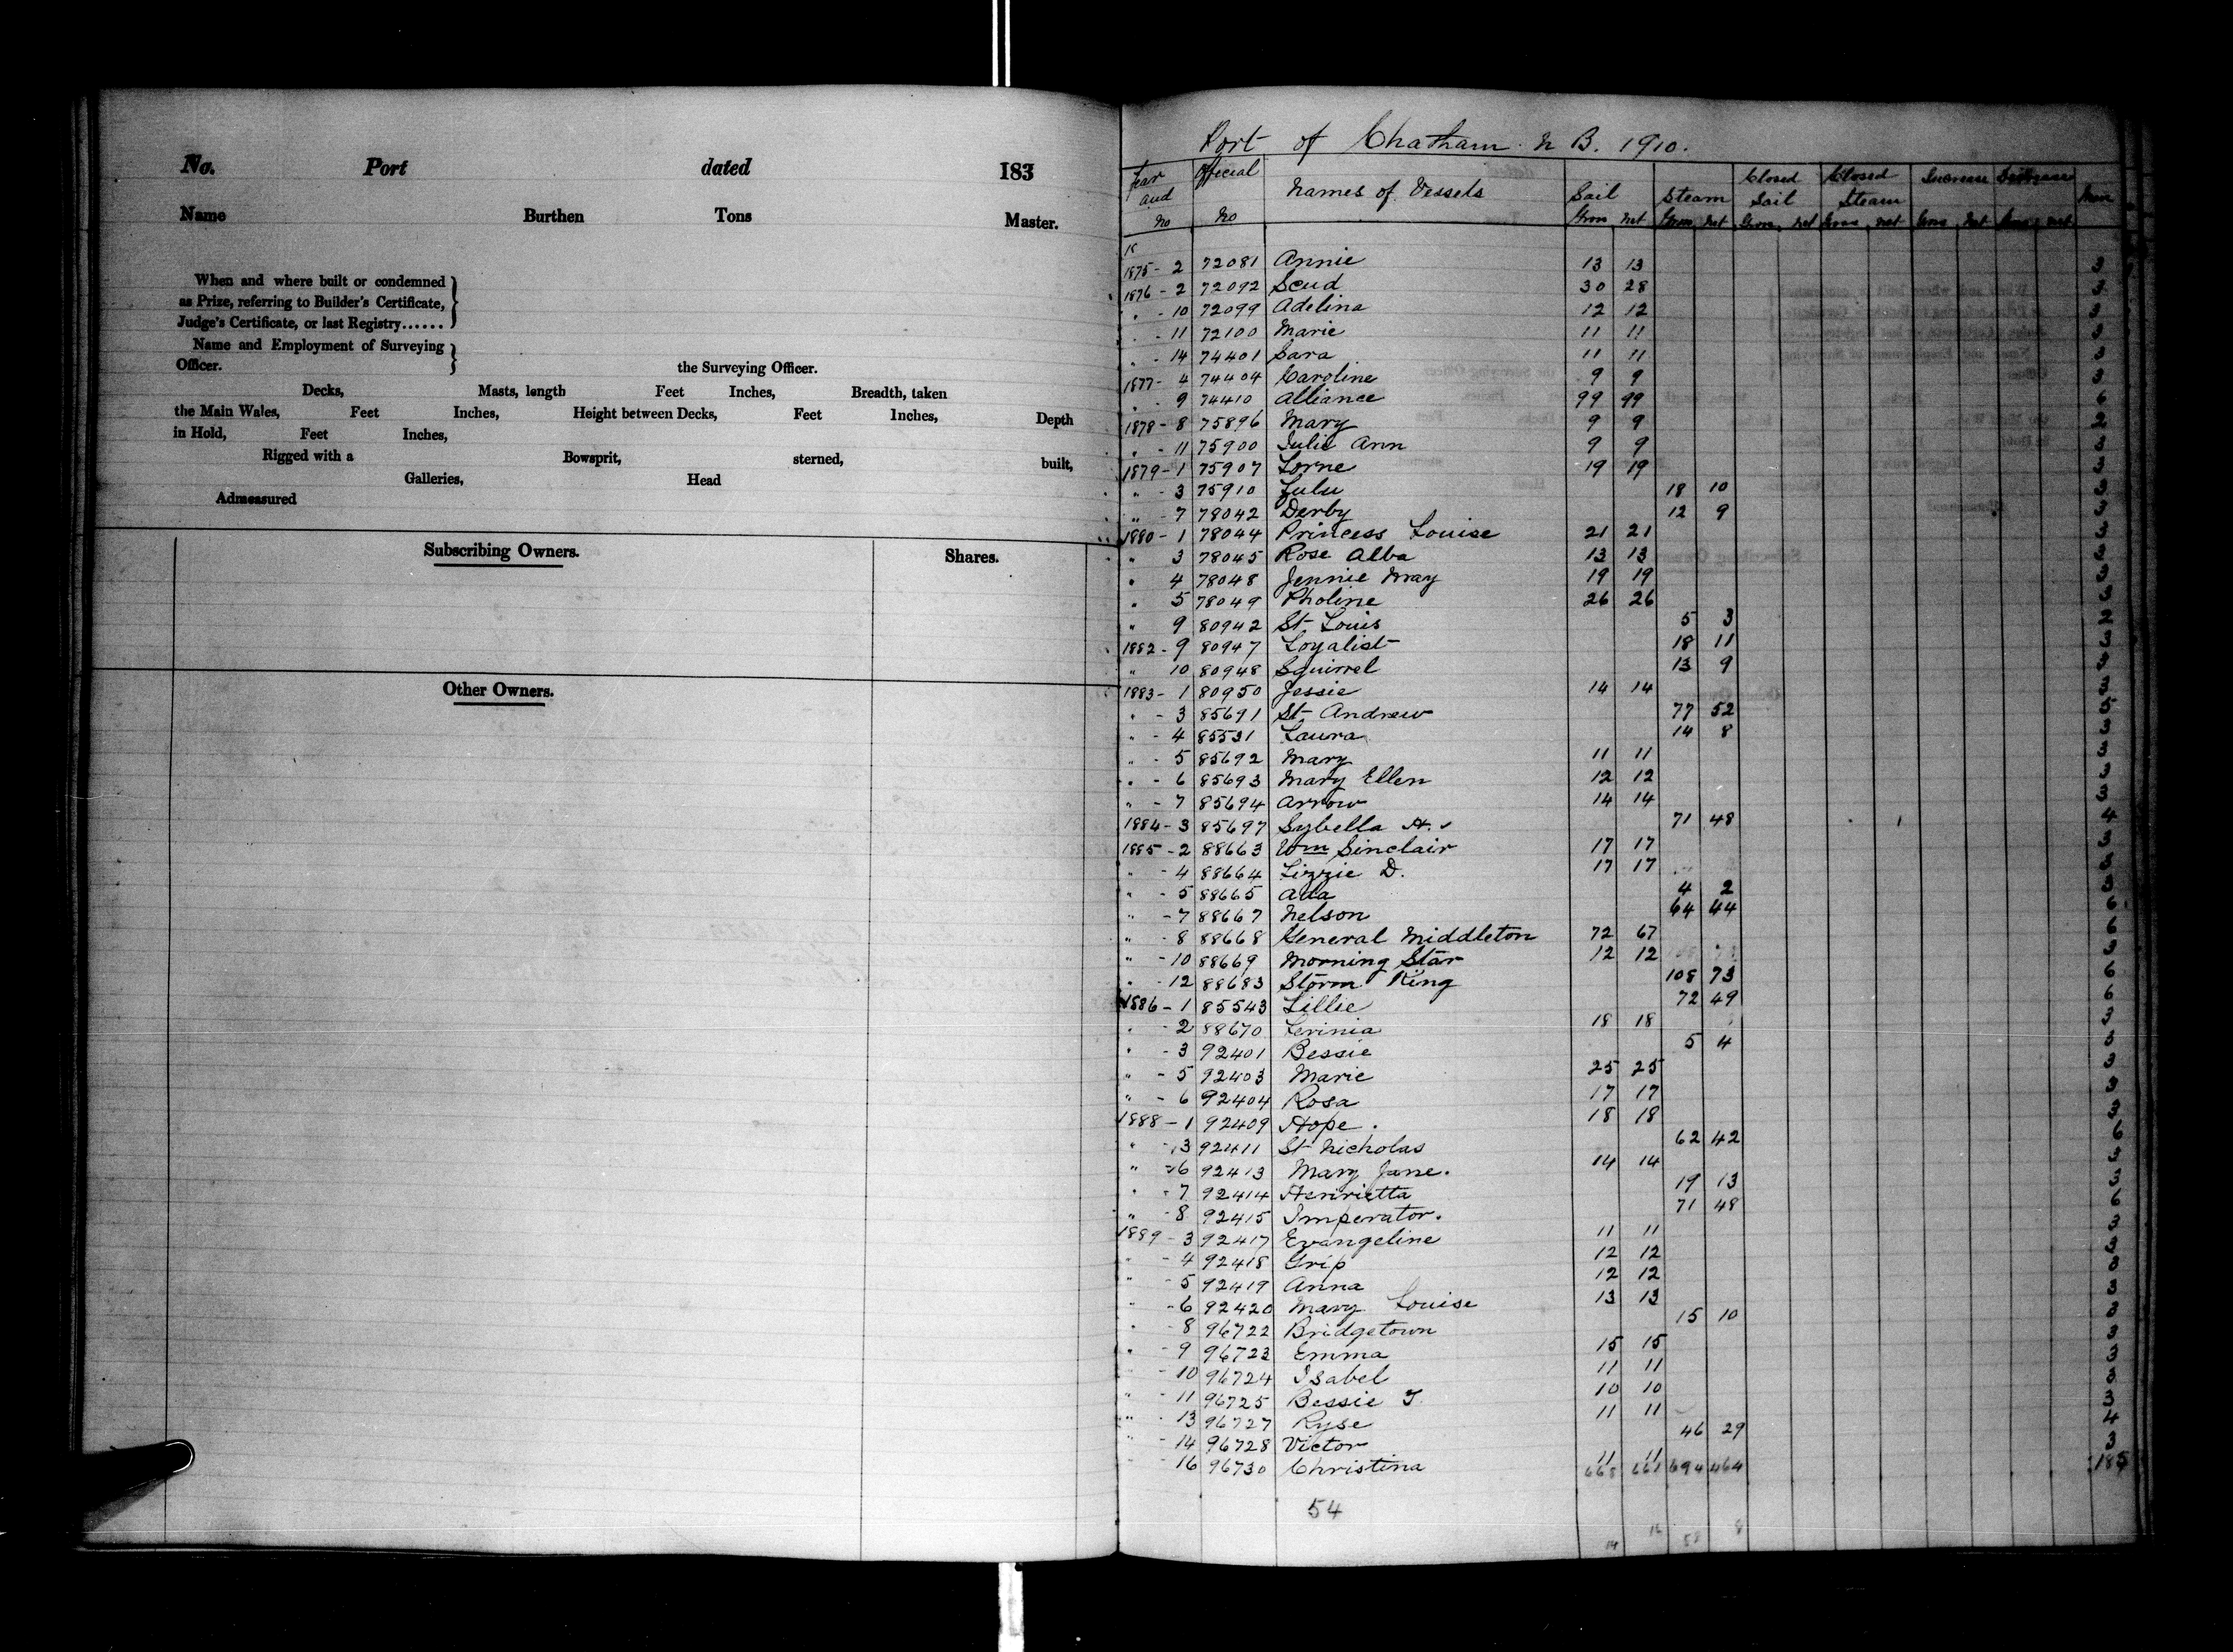 No. Port dated 183
Name Burthen Tons Master.
When and where built or condemned
as Prize, referring to Builder's Certificate,
Judge's Certificate, or last Registry......
Name and Employment of Surveying
Officer. the Surveying Officer.
Decks, Masts, length Feet Inches, Breadth, taken
the Main Wales, Feet Inches, Height between Decks, Feet Inches, Depth
in Hold, Feet Inches,
Rigged with a Bowsprit, sterned, built,
Galleries, Head
Admeasured
Subscribing Owners. Shares.
Other Owners.
Port of Chatham N B. 1910.
Year and No Official No Names of Vessels Sail Steam Closed Sail Closed Steam Increase Decrease Men
Gross Net Gross Net Gross Net Gross Net Gross Net Gross Net
1875 - 2 72081 Annie 13 13 3
1876 - 2 72092 Scud 30 28 3
" - 10 72099 Adelina 12 12 3
" - 11 72100 Marie 11 11 3
" - 14 74401 Sara 11 11 3
1877 - 4 74404 Caroline 9 9 3
" 9 74410 Alliance 99 99 6
1878 - 8 75896 Mary 9 9 2
" - 11 75900 Julie Ann 9 9 3
1879 - 1 75907 Lorne 19 19 3
" - 3 75910 Lulu 18 10 3
" - 7 78042 Derby 12 9 3
1880 - 1 78044 Princess Louise 21 21 3
" 3 78045 Rose Alba 13 13 3
" 4 78048 Jennie May 19 19 3
" 5 78049 Pholine 26 26 3
" 9 80942 St Louis 5 3 2
1882 - 9 80947 Loyalist 18 11 3
" 10 80948 Squirrel 13 9 3
1883 - 1 80950 Jessie 14 14 3
" - 3 85691 St Andrew 77 52 5
" - 4 85531 Laura 14 8 3
" - 5 85692 Mary 11 11 3
" - 6 85693 Mary Ellen 12 12 3
" - 7 85694 Arrow 14 14 3
1884 - 3 85697 Sybella H. 71 48 4
1885 - 2 88663 Wm Sinclair 17 17 3
" - 4 88664 Lizzie D. 17 17 3
" - 5 88665 Ada 4 2 3
" - 7 88667 Nelson 64 44 6
" - 8 88668 General Middleton 72 67 6
" - 10 88669 Morning Star 12 12 3
" - 12 88683 Storm King 108 73 6
1886 - 1 85543 Lillie 72 49 6
" - 2 88670 Levinia 18 18 3
" - 3 92401 Bessie 5 4 3
" - 5 92403 Marie 25 25 3
" - 6 92404 Rosa 17 17 3
1888 - 1 92409 Hope. 18 18 3
" - 3 92411 St Nicholas 62 42 6
" - 6 92413 Mary Jane. 14 14 3
" - 7 92414 Henrietta 19 13 3
" - 8 92415 Imperator. 71 48 6
1889 - 3 92417 Evangeline 11 11 3
" - 4 92418 Grip 12 12 3
" - 5 92419 Anna 12 12 3
" - 6 92420 Mary Louise 13 13 3
" - 8 96722 Bridgetown 15 10 3
" - 9 96723 Emma 15 15 3
" - 10 96724 Isabel 11 11 3
" - 11 96725 Bessie T. 10 10 3
" - 13 96727 Ryse 11 11 3
" - 14 96728 Victor 46 29 4
" - 16 96730 Christina 11 11 3
668 661 694 464 185
54